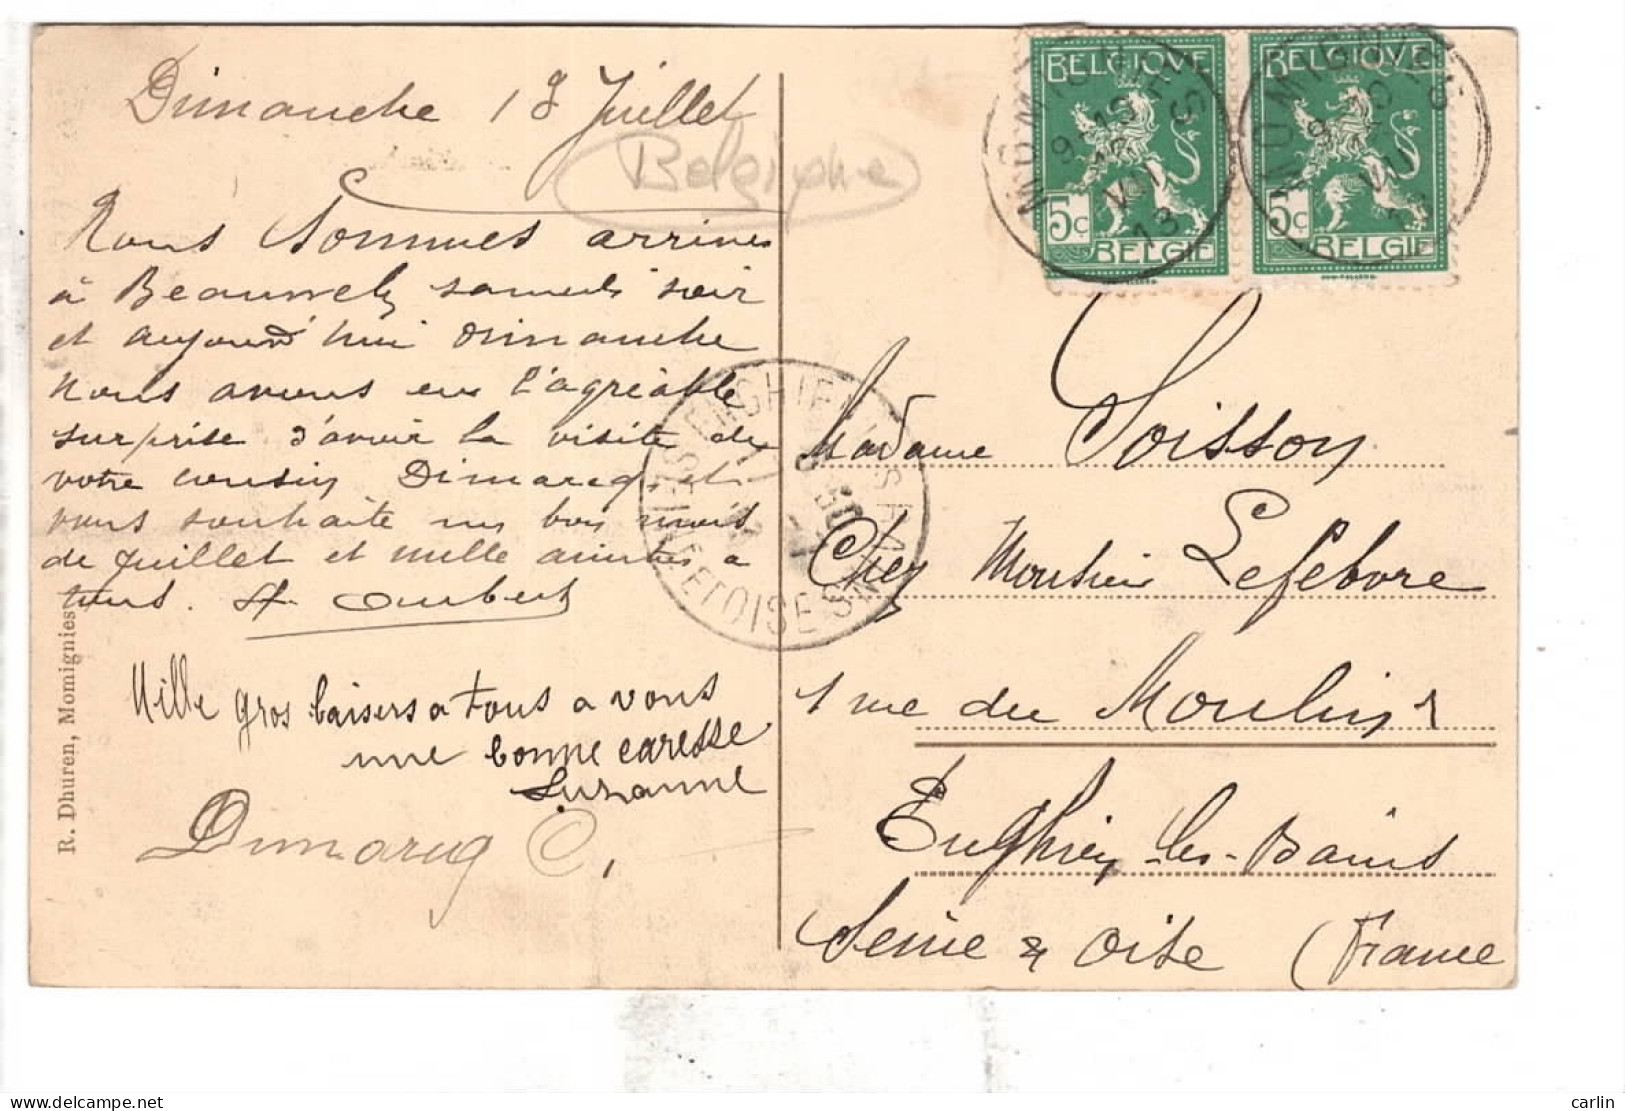 Dimanche 13 Juillet
Belgique
Nous sommes arrivés
à Beauwelz samedi soir
et aujourd'hui Dimanche
nous avons eu l'agréable
surprise d'avoir la visite de
votre cousin Dimarcq et
vous souhaite un bon mois
de Juillet et mille amitiés a
tous. Oubert
Mille gros baisers a tous a vous
une bonne caresse
Suzanne
Dimarcq C.
R. Dhuren, Momignies
BELGIQUE
5c
BELGIË
BELGIQUE
5c
BELGIË
MOMIGNIES
13 VII
13
MOMIGNIES
VII
ENGHIEN LES BAINS
SEINE ET OISE
Madame Soisson
Chez Monsieur Lefebvre
1 rue du Moulin 1
Enghien-les-Bains
Seine & Oise (France
carlin